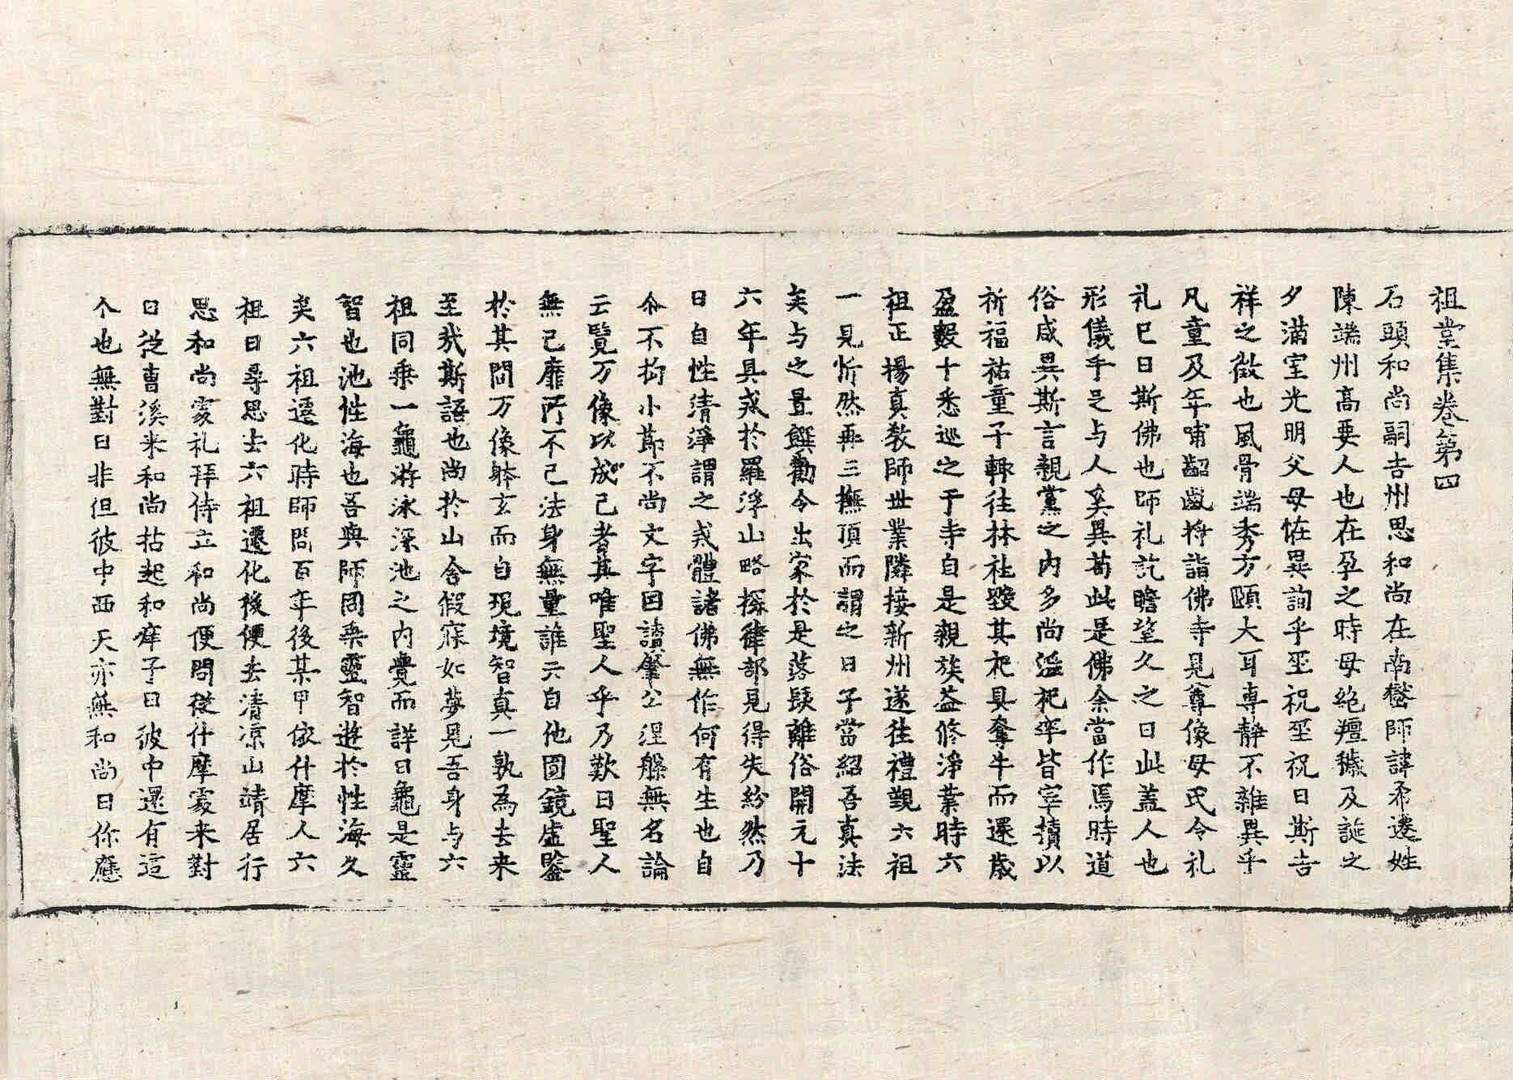 祖堂集卷第四
石頭和尚嗣吉州思和尚在南嶽師諱希遷姓
陳端州高要人也在孕之時母絶羶穢及誕之
夕滿室光明父母恠異詢乎巫祝巫祝曰斯吉
祥之徵也風骨端秀方頤大耳専静不雜異乎
凡童及年甫齠齓将詣佛寺見尊像母氏令礼
礼已曰斯佛也師礼訖瞻望久之曰此盖人也
形儀手足与人奚異苟此是佛余當作焉時道
俗咸異斯言親黨之内多尚滛祀率皆宰犢以
祈福祐童子輙往林社毀其祀具奪牛而還歳
盈數十悉巡之于寺自是親族益修浄業時六
祖正揚真教師世業隣接新州遂往禮覲六祖
一見忻然再三撫頂而謂之曰子當紹吾真法
矣与之置饌勸令出家於是落髮離俗開元十
六年具戒於羅浮山略探律部見得失紛然乃
曰自性清淨謂之戒體諸佛無作何有生也自
尒不拘小莭不尚文字因讀肇公涅槃無名論
云覽万像以成己者其唯聖人乎乃歎曰聖人
無己靡所不己法身無量誰云自他圓鏡虚鑒
於其間万像躰玄而自現境智真一孰為去来
至哉斯語也尚於山舎假寐如夢見吾身与六
祖同乗一龜游泳深池之内覺而詳曰龜是靈
智也池性海也吾與師同乗靈智遊於性海久
矣六祖遷化時師問百年後某甲依什摩人六
祖曰尋思去六祖遷化後便去清凉山靖居行
思和尚處礼拜侍立和尚便問從什摩處来對
曰從曹溪来和尚拈起和痒子曰彼中還有這
个也無對曰非但彼中西天亦無和尚曰你應